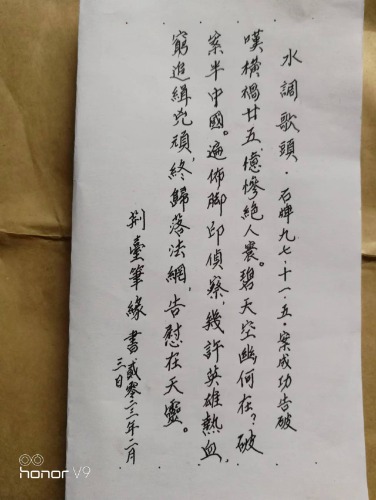 水調歌頭·石牌九七·十一·五·案成功告破
嘆橫禍廿五,憶慘絕人寰。碧天空幽何在?破
案半中國。遍佈腳印偵察,幾許英雄熱血,
窮追緝兇頑,終歸落法網,告慰在天靈。
荆臺筆緣 書貳零二三年二月
三日
honor V9